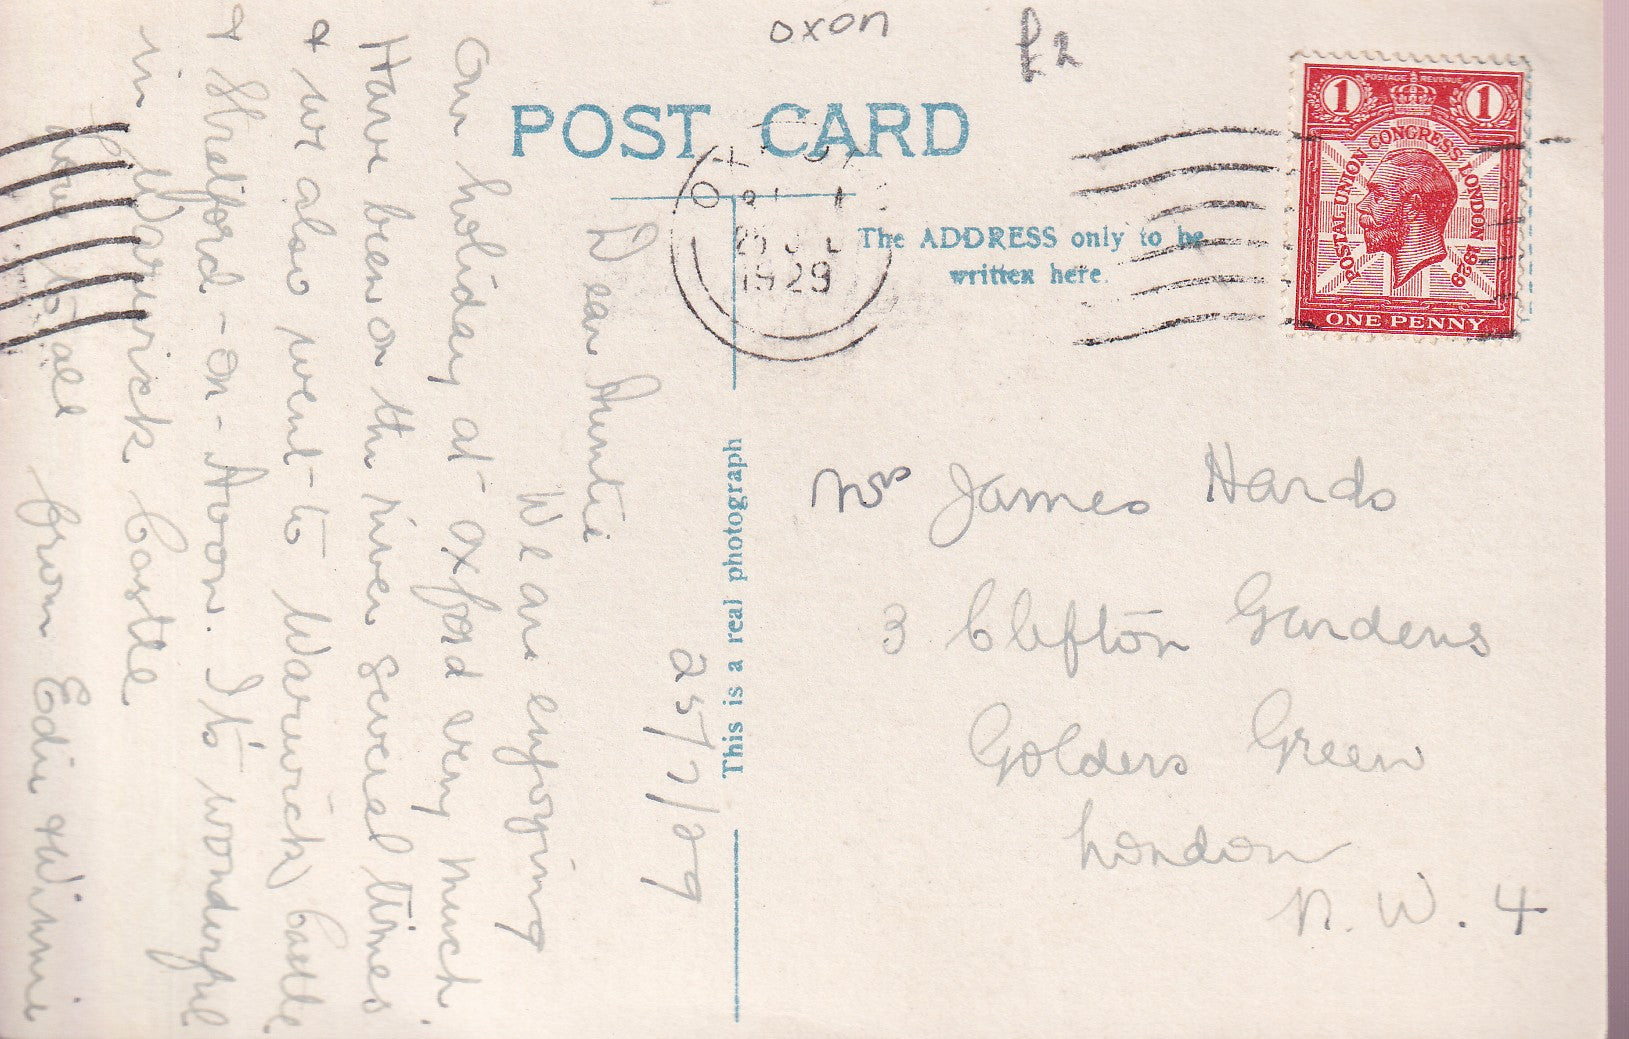 oxon
£2
POST CARD
The ADDRESS only to be
written here.
This is a real photograph
POSTAGE REVENUE
1 1
POSTAL UNION CONGRESS LONDON 1929
ONE PENNY
OXFORD
25 JUL
1929
25/7/29
Dear Auntie
We are enjoying
our holiday at Oxford very much.
Have been on the river several times
& we also went to Warwick Castle
& Stratford-on-Avon. It's wonderful
in Warwick Castle
Love to all from Edie & Winnie
Mrs James Hards
3 Clifton Gardens
Golders Green
London
N.W.4